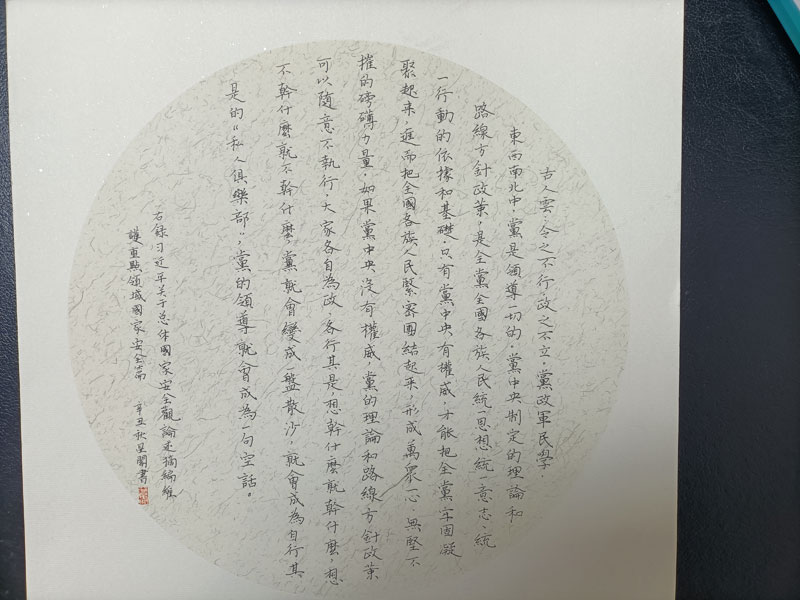 古人雲，令之不行，政之不立。黨政軍民學，
東西南北中，黨是領導一切的。黨中央制定的理論和
路線方針政策，是全黨全國各族人民統一思想統一意志、統
一行動的依據和基礎。只有黨中央有權威，才能把全黨牢固凝
聚起來，進而把全國各族人民緊密團結起來，形成萬眾一心、無堅不
摧的磅礴力量。如果黨中央沒有權威，黨的理論和路線方針政策
可以隨意不執行，大家各自為政、各行其是，想幹什麼就幹什麼，想
不幹什麼就不幹什麼，黨就會變成一盤散沙，就會成為自行其
是的“私人俱樂部”，黨的領導就會成為一句空話。
右錄习近平关于总体國家安全觀論述摘編維
護重點領域國家安全篇 辛丑秋 書